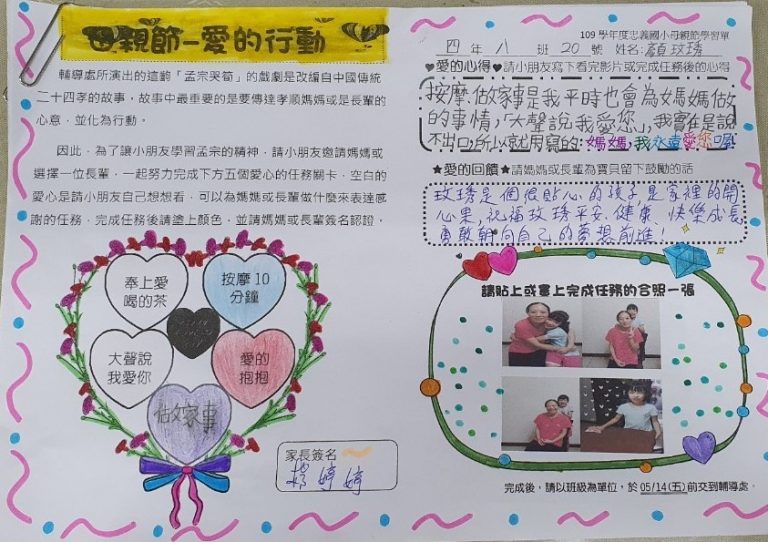 母親節-愛的行動
輔導處所演出的這齣「孟宗哭筍」的戲劇是改編自中國傳統
二十四孝的故事，故事中最重要的是要傳達孝順媽媽或是長輩的
心意，並化為行動。
因此，為了讓小朋友學習孟宗的精神，請小朋友邀請媽媽或
選擇一位長輩，一起努力完成下方五個愛心的任務關卡，空白的
愛心是請小朋友自己想想看，可以為媽媽或長輩做什麼來表達感
謝的任務，完成任務後請塗上顏色，並請媽媽或長輩簽名認證。
奉上愛
喝的茶
按摩 10
分鐘
大聲說
我愛你
愛的
抱抱
做家事
家長簽名
楊婷婷
109 學年度忠義國小母親節學習單
四 年 八 班 20 號 姓名:顏玟琇
♥愛的心得♥請小朋友寫下看完影片或完成任務後的心得
按摩、做家事是我平時也會為媽媽做
的事情,「大聲說我愛您」,我實在是說
不出口,所以就用寫的:媽媽,我永遠愛您
★愛的回饋★請媽媽或長輩為寶貝留下鼓勵的話
玟琇是個很貼心的孩子是家裡的開
心果,祝福玟琇平安、健康 快樂成長
勇敢朝向自己的夢想前進!
請貼上或畫上完成任務的合照一張
完成後，請以班級為單位，於 05/14(五)前交到輔導處。